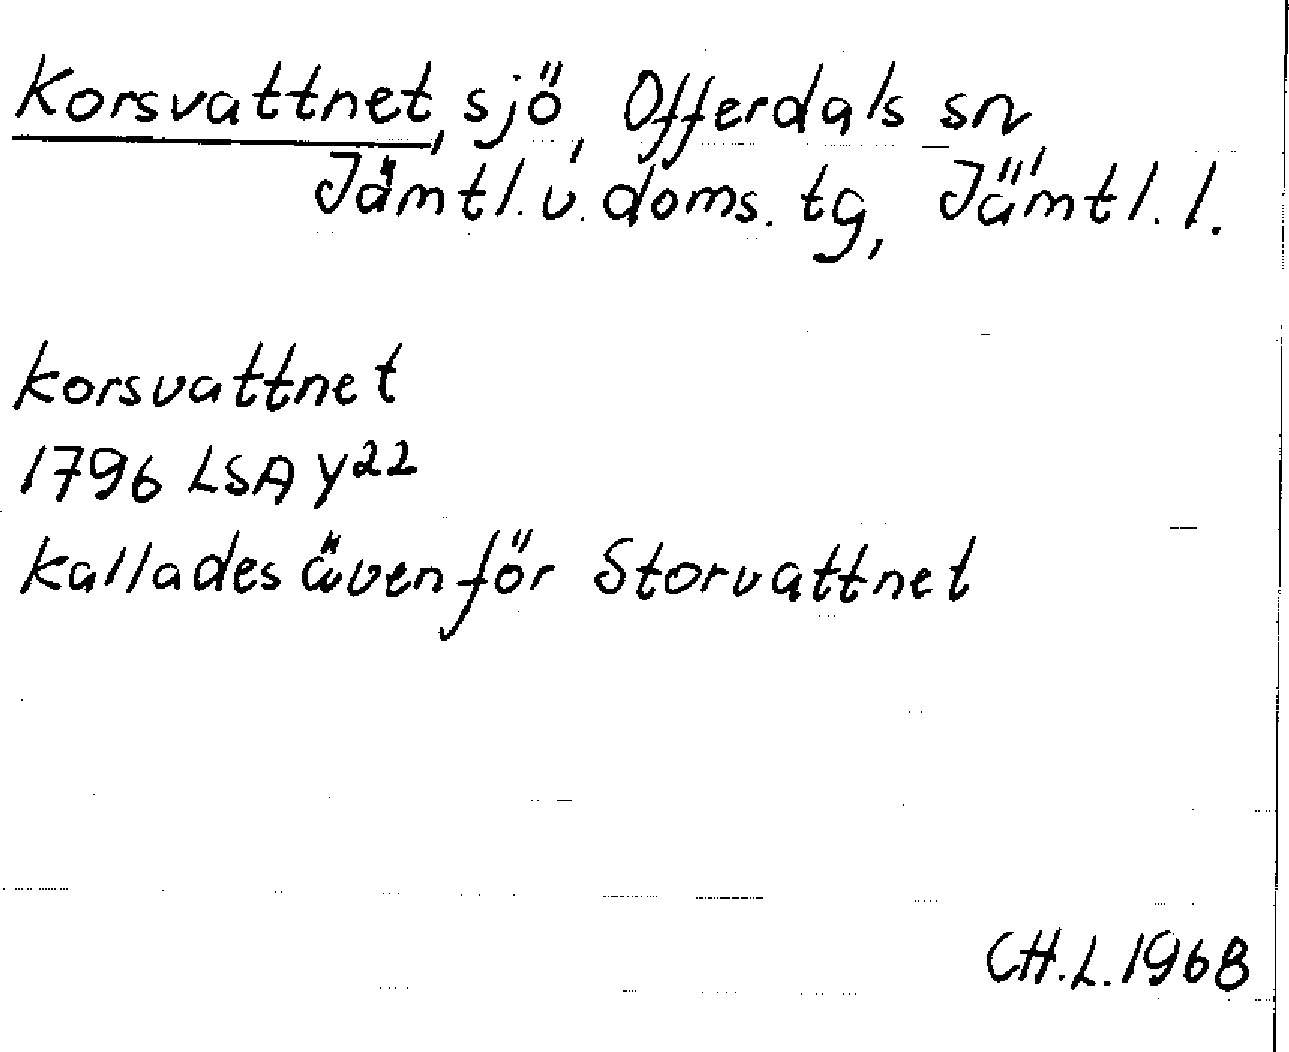 Korsvattnet, sjö, Offerdals sn,
Jämtl.v.doms.tg, Jämtl.l.
Korsvattnet
1796 LSA Y22
Kallades även för Storvattnet
CH.L.1968